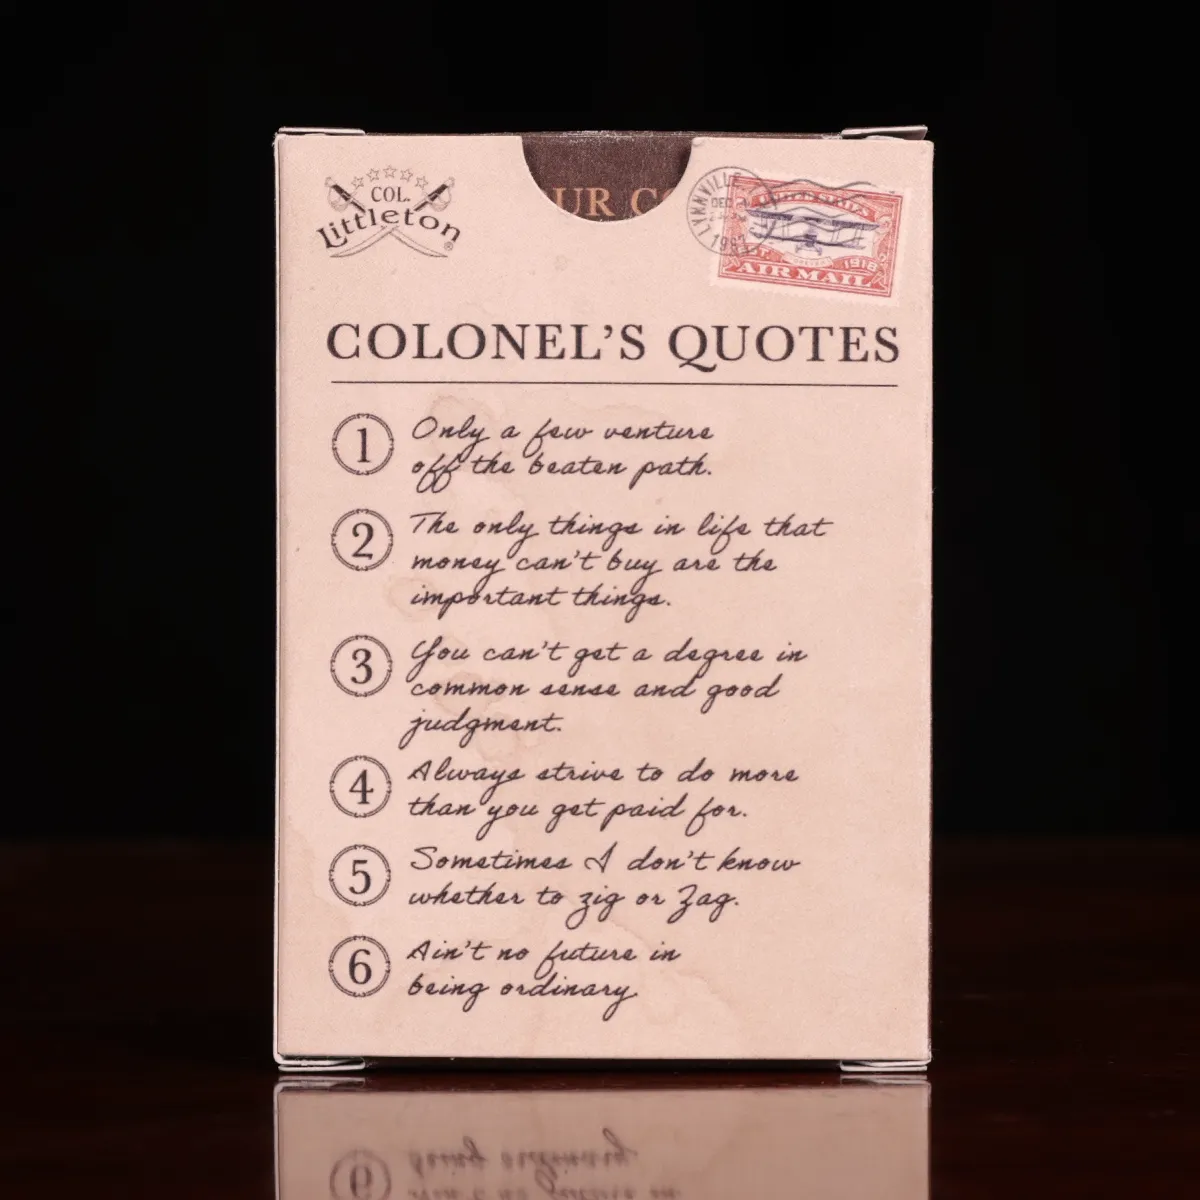 COL.
Littleton
®
UR CO
LYNNVILLE
DEC
1987
UNITED STATES
1918
AIR MAIL
COLONEL'S QUOTES
1 Only a few venture
off the beaten path.
2 The only things in life that
money can't buy are the
important things.
3 You can't get a degree in
common sense and good
judgment.
4 Always strive to do more
than you get paid for.
5 Sometimes I don't know
whether to zig or Zag.
6 Ain't no future in
being ordinary